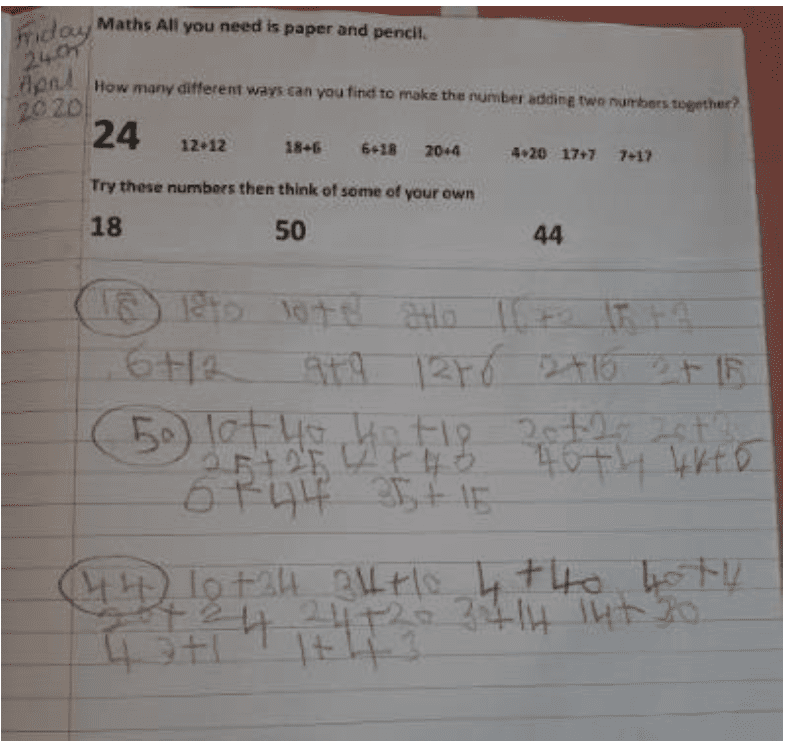 Friday Maths All you need is paper and pencil.
24th
April How many different ways can you find to make the number adding two numbers together?
2020
24 12+12 18+6 6+18 20+4 4+20 17+7 7+17
Try these numbers then think of some of your own
18 50 44
18 18+0 10+8 8+10 16+2 15+3
6+12 9+9 12+6 2+16 15
50 10+40 40+10
25+25 40+4 44+6
6+44 35+15
44 10+34 34+10 4+40 40+4
20+24 24+20 30+14 14+30
43+1 1+43